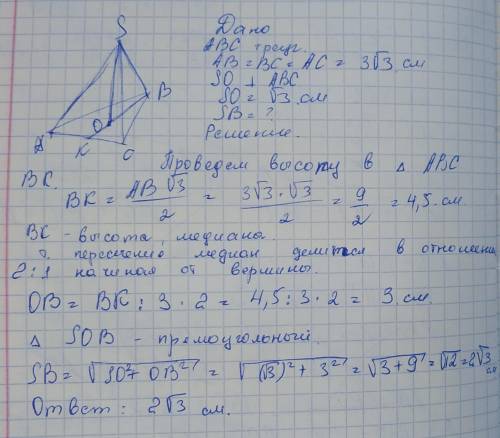 S
A
B
O
K
C
Дано
ABC треуг.
AB = BC = AC = 3√3 см
SO ⊥ ABC
SO = √3 см
SB = ?
Решение.
Проведем высоту в △ ABC
BK.
BK = AB√3/2 = 3√3 · √3/2 = 9/2 = 4,5 см.
BK - высота, медиана.
т. пересечение медиан делится в отношении
2:1 начиная от вершины.
OB = BK : 3 · 2 = 4,5 : 3 · 2 = 3 см.
△ SOB - прямоугольный.
SB = √(SO² + OB²) = √((√3)² + 3²) = √(3 + 9) = √12 = 2√3 см
Ответ: 2√3 см.